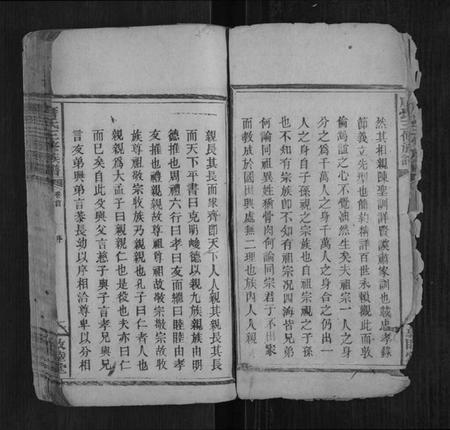 然其相親陳聖訓詳賢謨蕭家訓也載忠孝錄
節義立先型也簡約精詳百世永賴觀此而敦
倫篤誼之心不覺油然生矣夫祖宗一人之身
分之為千萬人之身千萬人之身合之仍出一
人之身自子孫視之宗族也自祖宗視之子孫
也不知有宗族即不知有祖宗況四海皆兄弟
何論同祖異姓稱骨肉何論同宗君子不出家
而教成於國田興處無二理也族內人人親
親長其長而家齊即天下人人親其親長其長
而天下平書曰克明峻德以親九族親族由明
德推也周禮六行曰孝曰友而繼曰睦睦由孝
友推也禮親親故尊祖尊祖故敬宗敬宗故收
族尊祖敬宗收族乃親親也孔子曰仁者人也
親親為大孟子曰親親仁也是從也夫亦曰仁
而已矣自此爻與父言慈子與子言孝兄與兄
言友弟與弟言恭長幼以序相洽尊卑以分相
序
敦睦堂